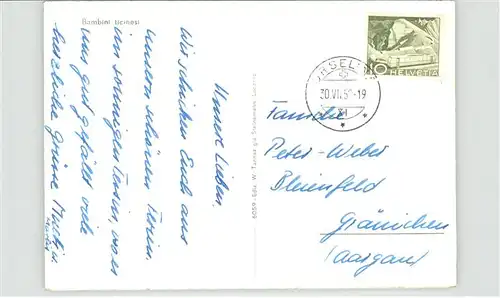 Bambini ticinesi
Unsere Lieben.
Wir schicken Euch aus
unsern schönen Ferien
im sonnigen Tessin, wo es
uns gut gefällt viele
herzliche Grüsse Martin
6059 - Ediz. W.
HELVETIA
30.VI.5 -19
Familie
Peter-Weber
Bleienfeld
Gränichen
(Aargau)